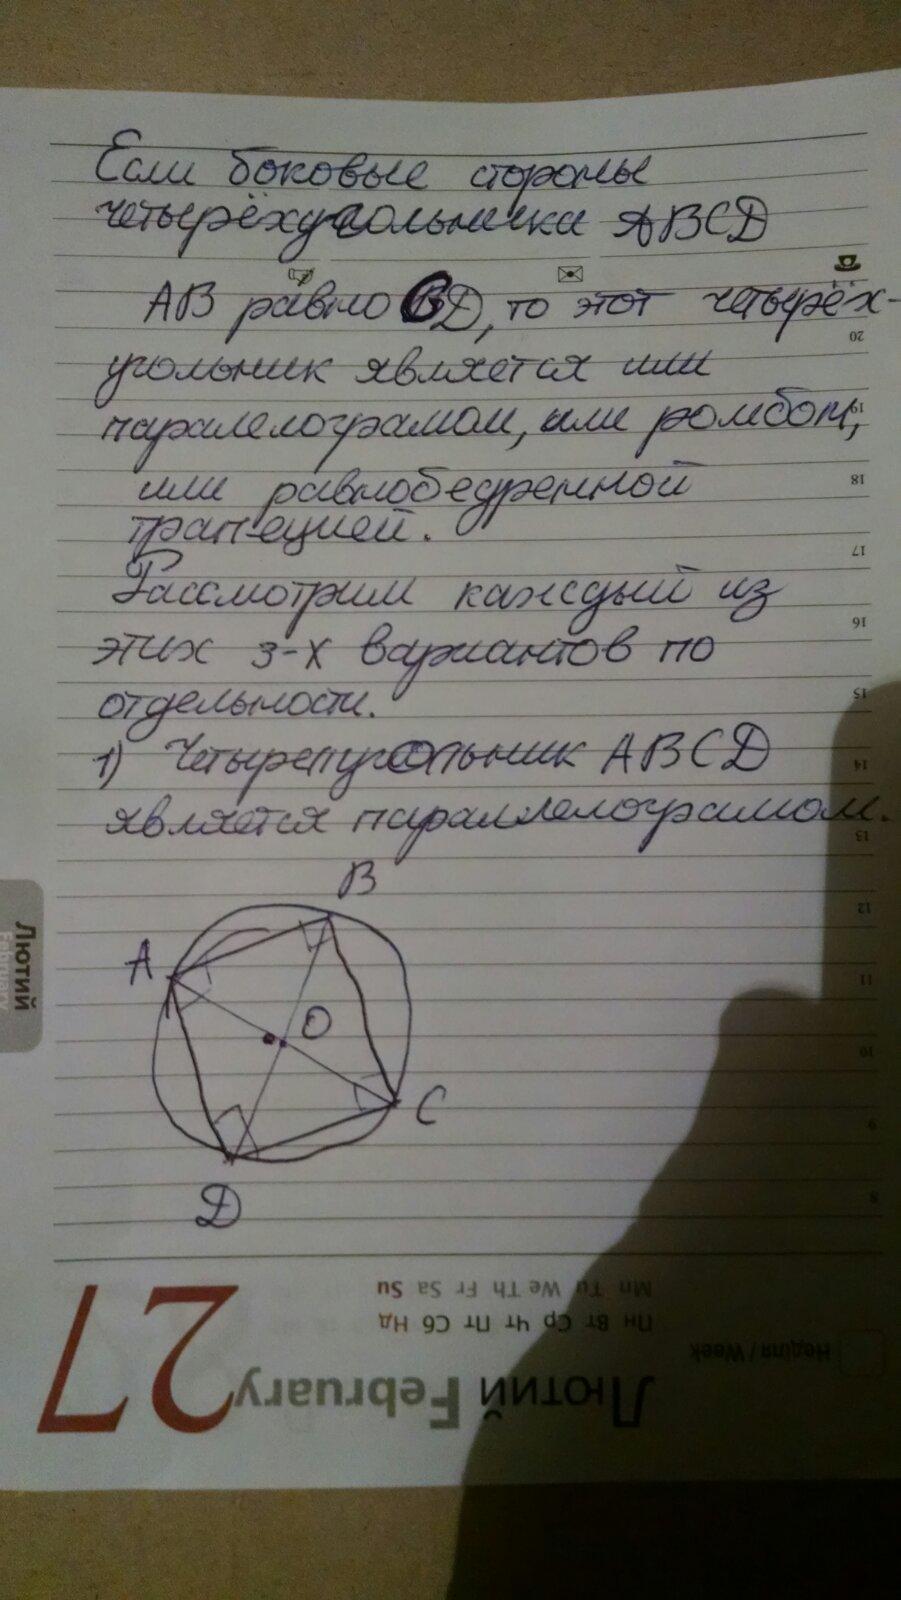 Если боковые стороны
четырёхугольника ABCD
AB равно CD, то этот четырёх-
угольник является или
паралелограмом, или ромбом,
или равнобедренной
трапецией.
Рассмотрим каждый из
этих 3-х вариантов по
отдельности.
1) Четырёхугольник ABCD
является параллелограмом.
B
A
O
C
D
20
19
18
17
16
15
14
13
12
11
10
9
8
Лютий
February
Mn Tu We Th Fr Sa Su
Пн Вт Ср Чт Пт Сб Нд
Неділя / Week
Лютий February
27